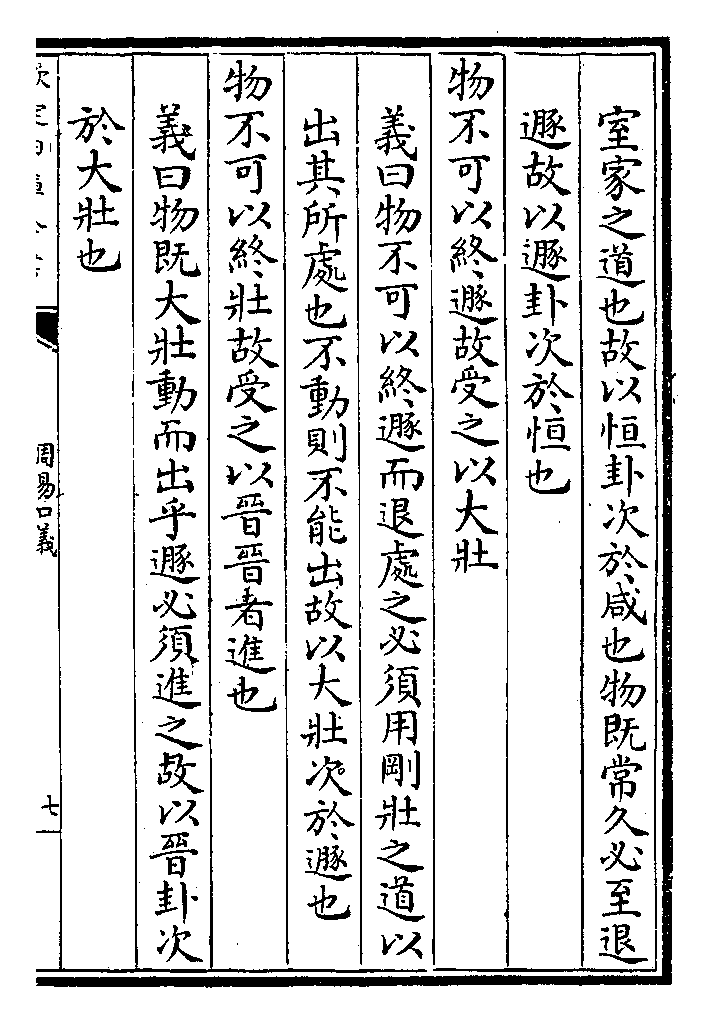 室家之道也故以恒卦次於咸也物既常久必至退
遯故以遯卦次於恒也
物不可以終遯故受之以大壯
義曰物不可以終遯而退處之必須用剛壯之道以
出其所處也不動則不能出故以大壯次於遯也
物不可以終壯故受之以晉晉者進也
義曰物既大壯動而出乎遯必須進之故以晉卦次
於大壯也
周易口義
七